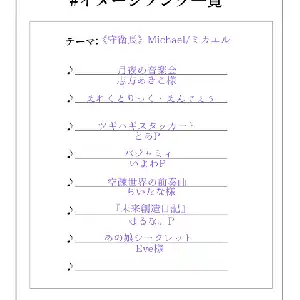 #イメージソング一覧
テーマ:《守衛長》Michael/ミカエル
♪ 月夜の音楽会
志方あきこ様
♪ えれくとりっく・えんじぇぅ
♪ ツギハギスタッカート
とあP
♪ パジャミィ
いよわP
♪ 空想世界の前奏曲
ちいたな様
♪ 『未来創造日記』
はるな。P
♪ あの娘シークレット
Eve様
♪